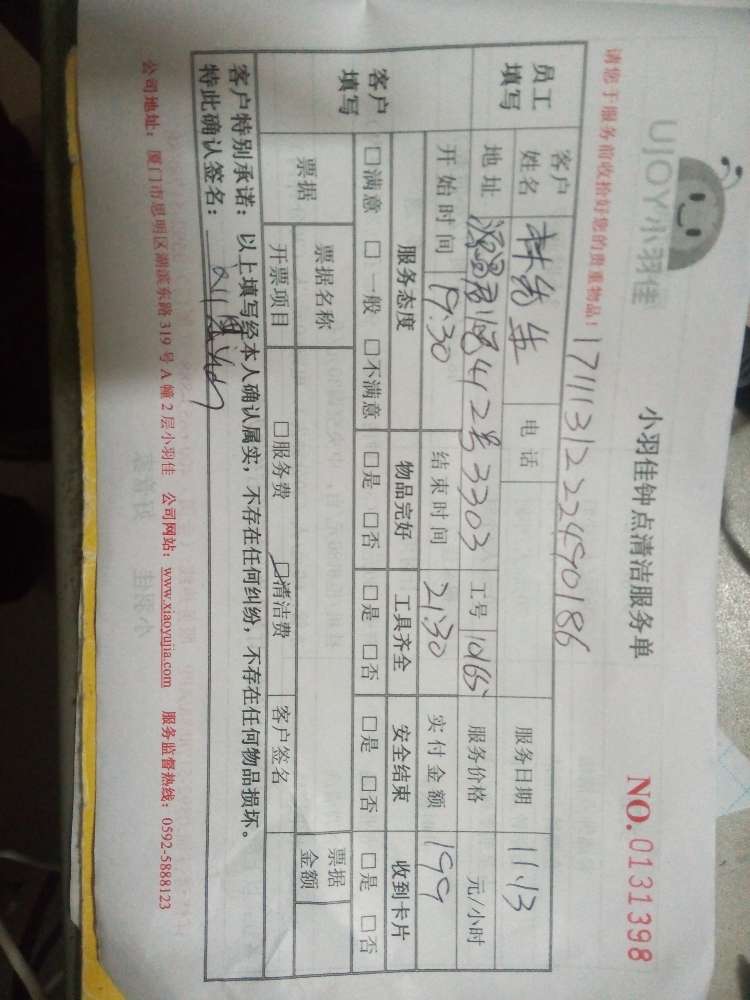 UJOY小羽佳
小羽佳钟点清洁服务单
NO.0131398
请您于服务前收拾好您的贵重物品！
17111312224590186
员工填写
客户姓名 林先生 电话 服务日期 11.13
地址 412号3303 工号 10165 服务价格 元/小时
开始时间 19:30 结束时间 21:30 实付金额 199
客户填写
服务态度 物品完好 工具齐全 安全结束 收到卡片
□满意 □一般 □不满意 □是 □否 □是 □否 □是 □否 □是 □否
票据 票据名称 票据金额
开票项目 □服务费 □清洁费 客户签名
客户特别承诺：以上填写经本人确认属实，不存在任何纠纷，不存在任何物品损坏。
特此确认签名：
公司地址：厦门市思明区湖滨东路 319 号 A 幢 2 层小羽佳 公司网站：www.xiaoyujia.com 服务监督热线：0592-5888123